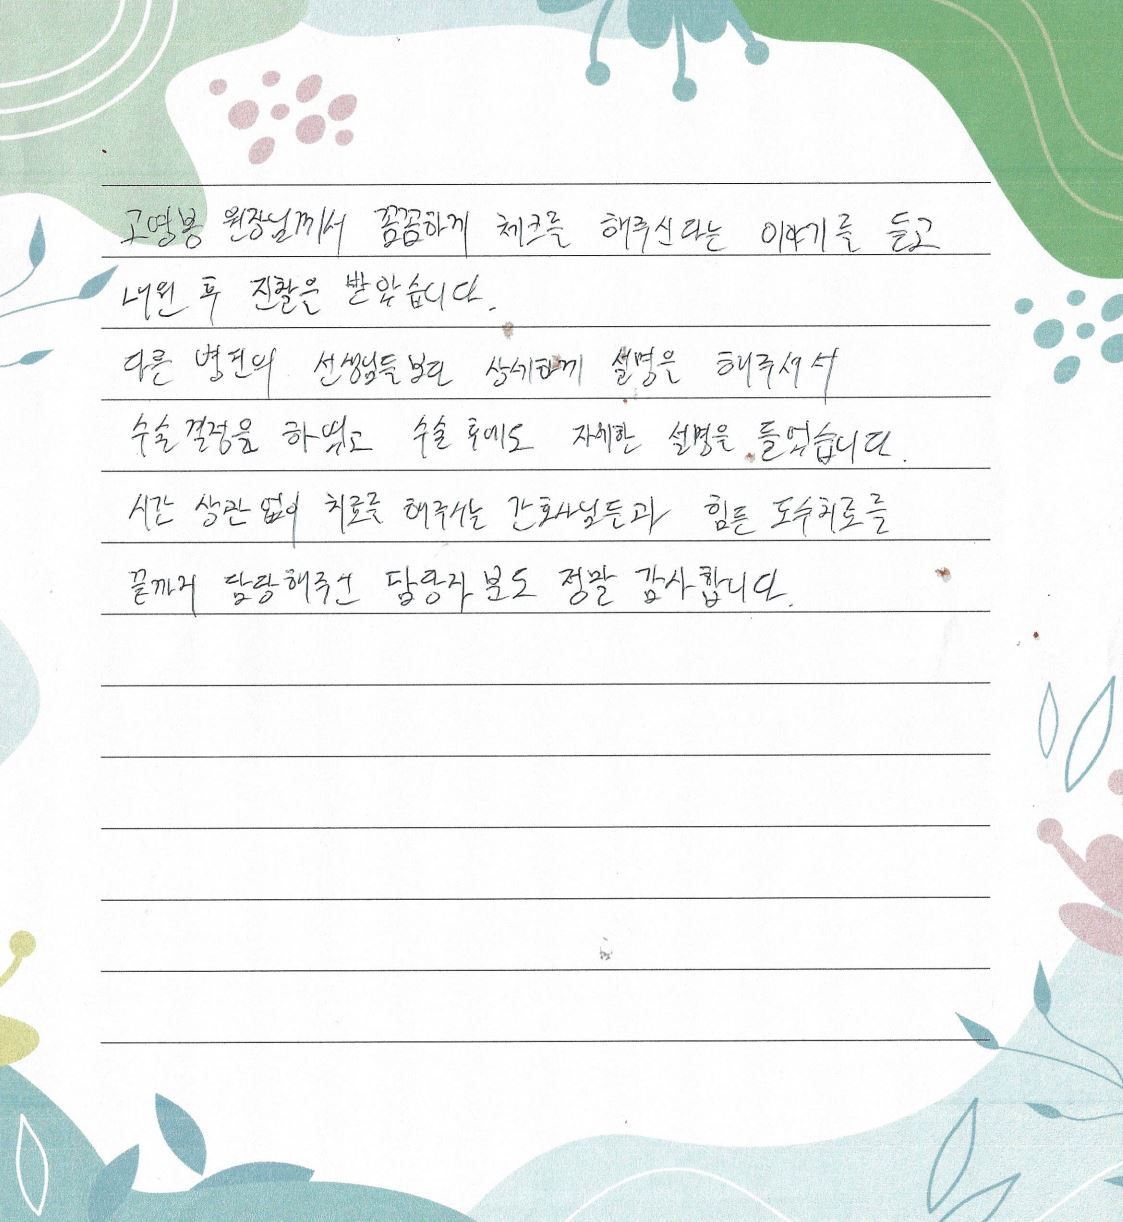 고영봉 원장님께서 꼼꼼하게 체크를 해주신다는 이야기를 듣고
내원 후 진찰을 받았습니다.
다른 병원의 선생님들보다 상세하게 설명을 해주셔서
수술결정을 하였고 수술 후에도 자세한 설명을 들었습니다.
시간 상관 없이 치료를 해주시는 간호사님들과 힘든 도수치료를
끝까지 담당해주신 담당자분도 정말 감사합니다.